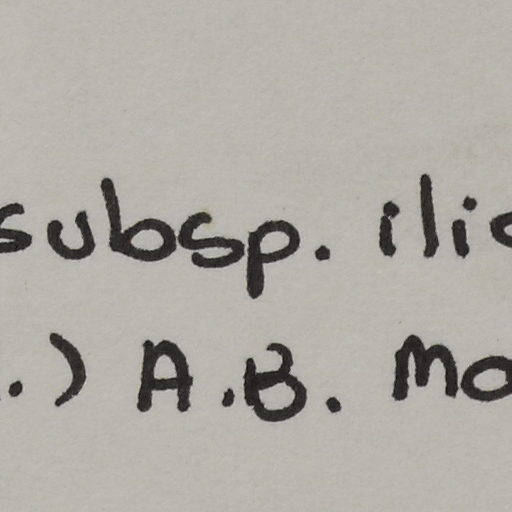 subsp. ilic
.) A.B. Mo